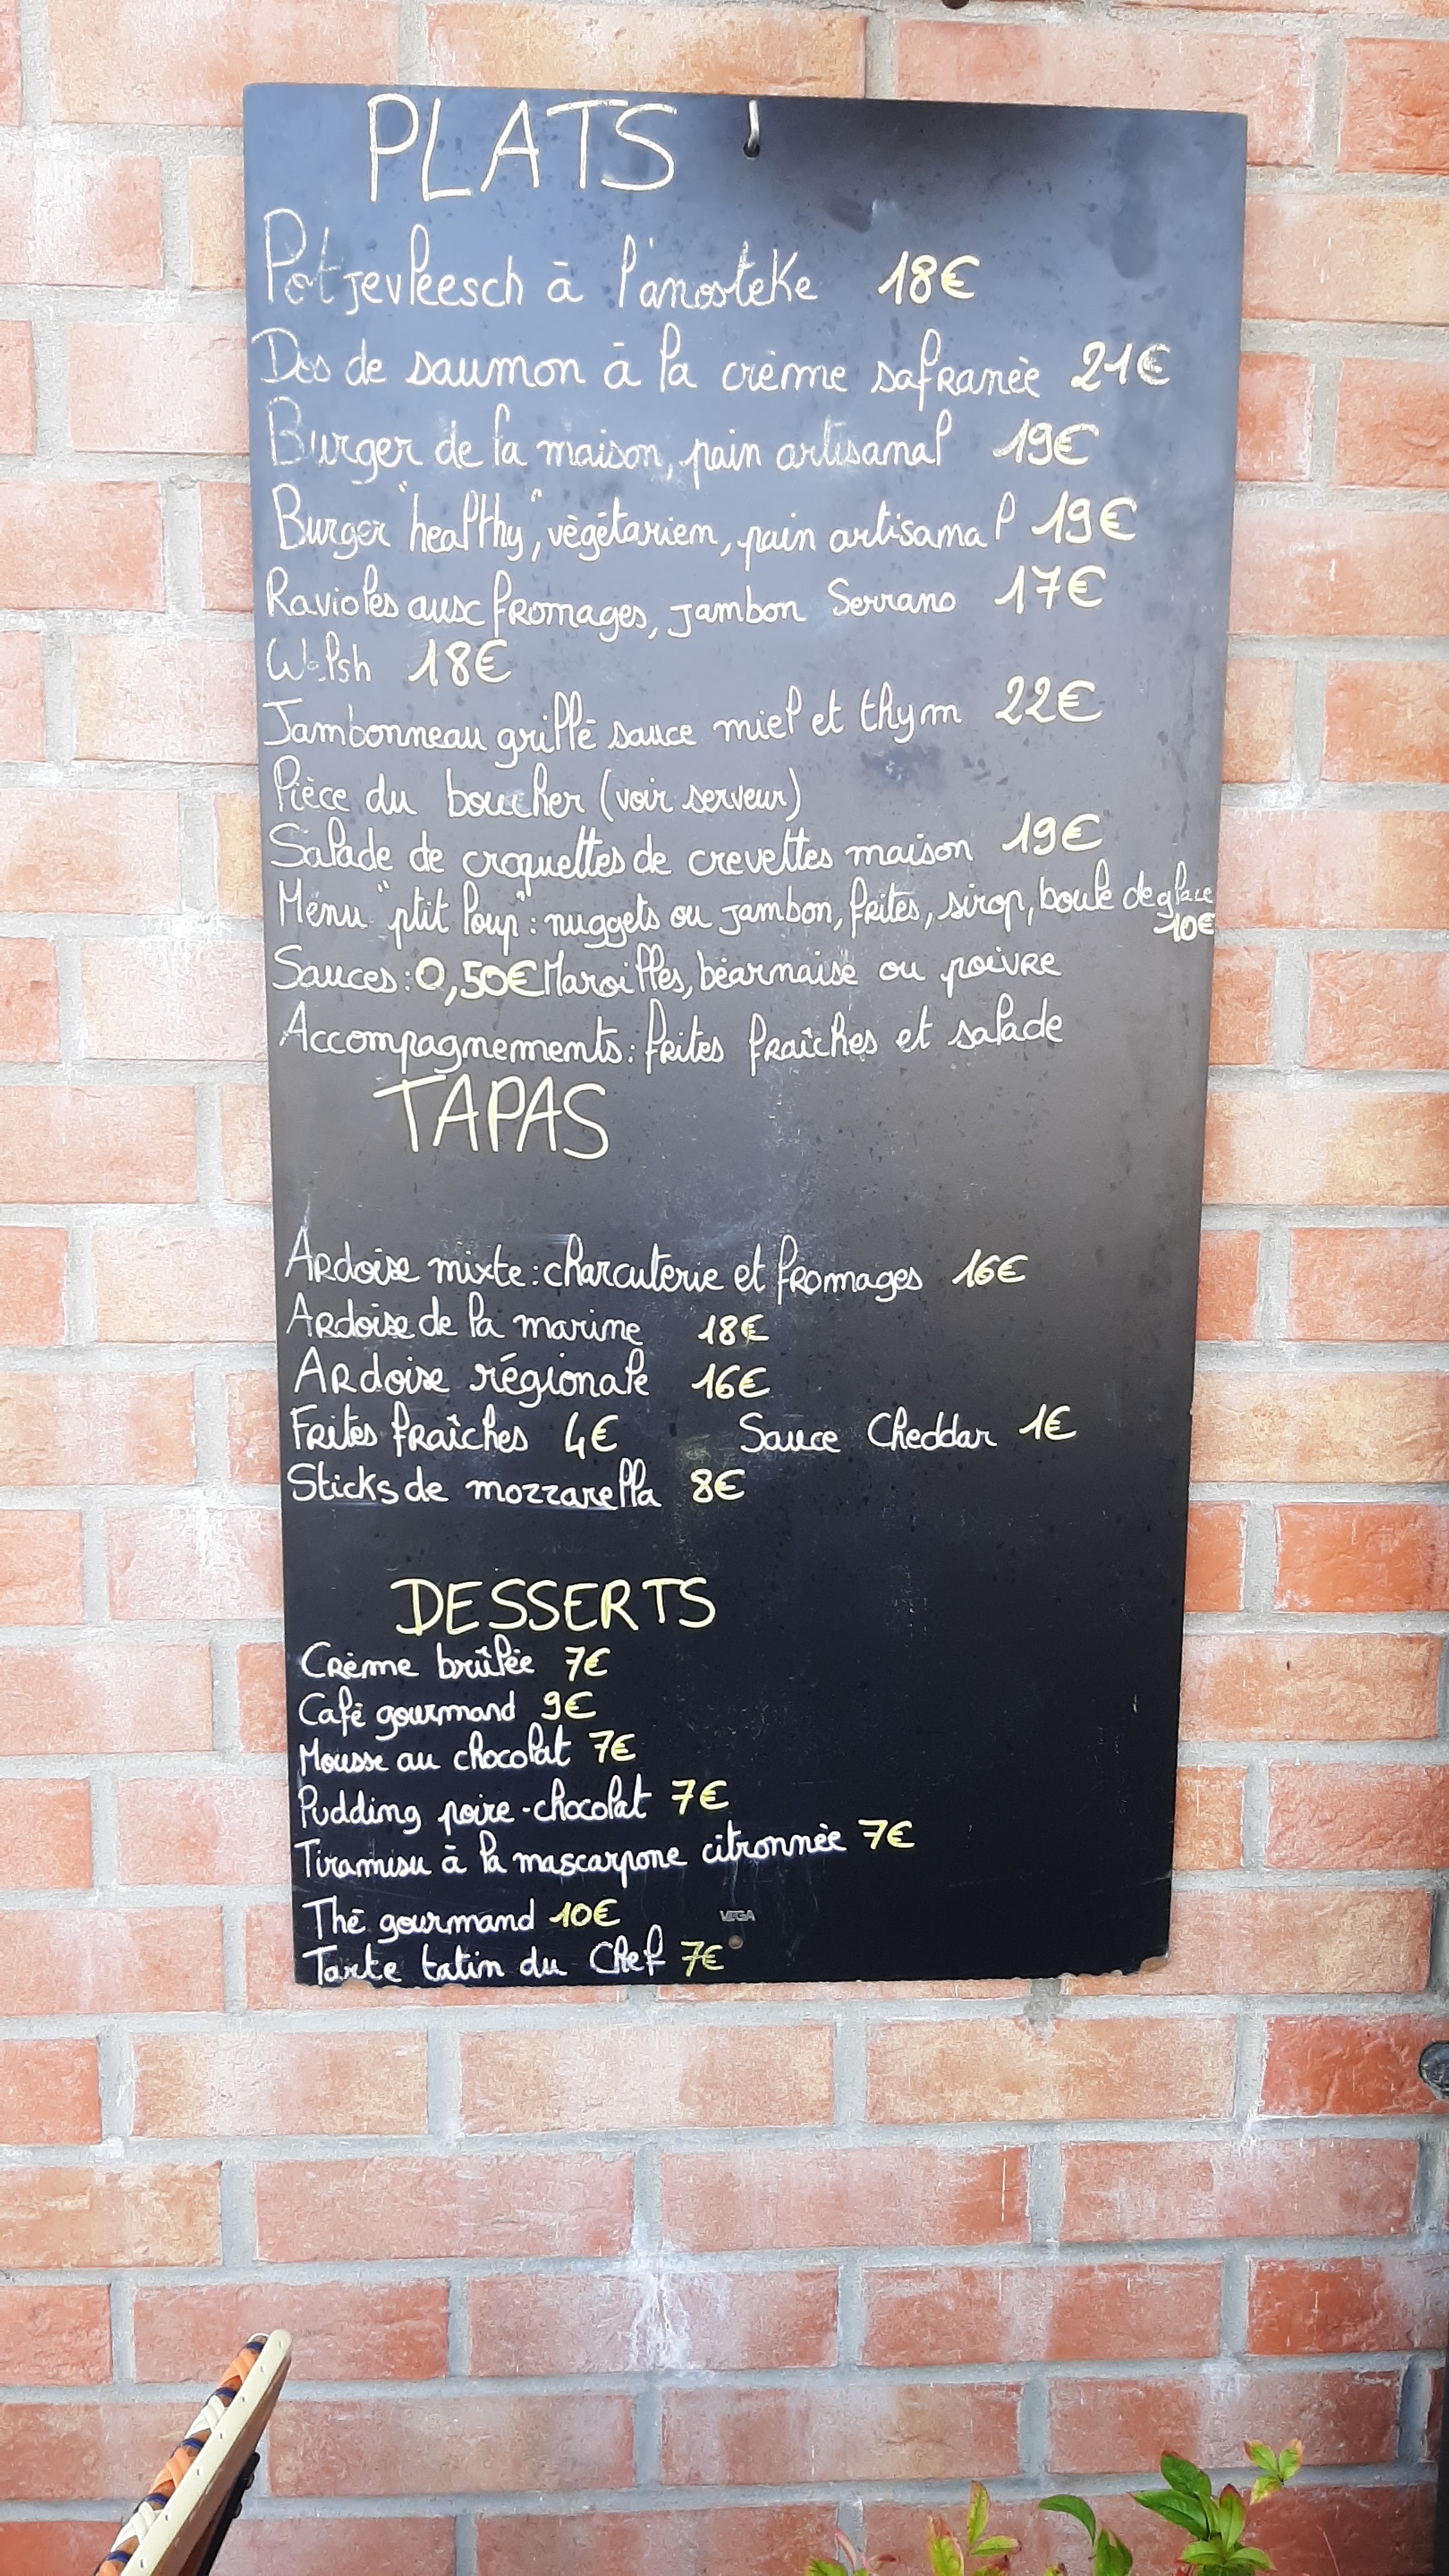 PLATS
Potjevleesch à l'anosteke 18€
Dos de saumon à la crème safranée 21€
Burger de la maison, pain artisanal 19€
Burger "healthy", végétarien, pain artisanal 19€
Ravioles aux fromages, jambon Serrano 17€
Welsh 18€
Jambonneau grillé sauce miel et thym 22€
Pièce du boucher (voir serveur)
Salade de croquettes de crevettes maison 19€
Menu "ptit loup": nuggets ou jambon, frites, sirop, boule de glace
10€
Sauces: 0,50€ Maroilles, béarnaise ou poivre
Accompagnements: frites fraîches et salade
TAPAS
Ardoise mixte: charcuterie et fromages 16€
Ardoise de la marine 18€
Ardoise régionale 16€
Frites fraîches 4€ Sauce Cheddar 1€
Sticks de mozzarella 8€
DESSERTS
Crème brûlée 7€
Café gourmand 9€
Mousse au chocolat 7€
Pudding poire-chocolat 7€
Tiramisu à la mascarpone citronnée 7€
Thé gourmand 10€
VEGA
Tarte tatin du Chef 7€